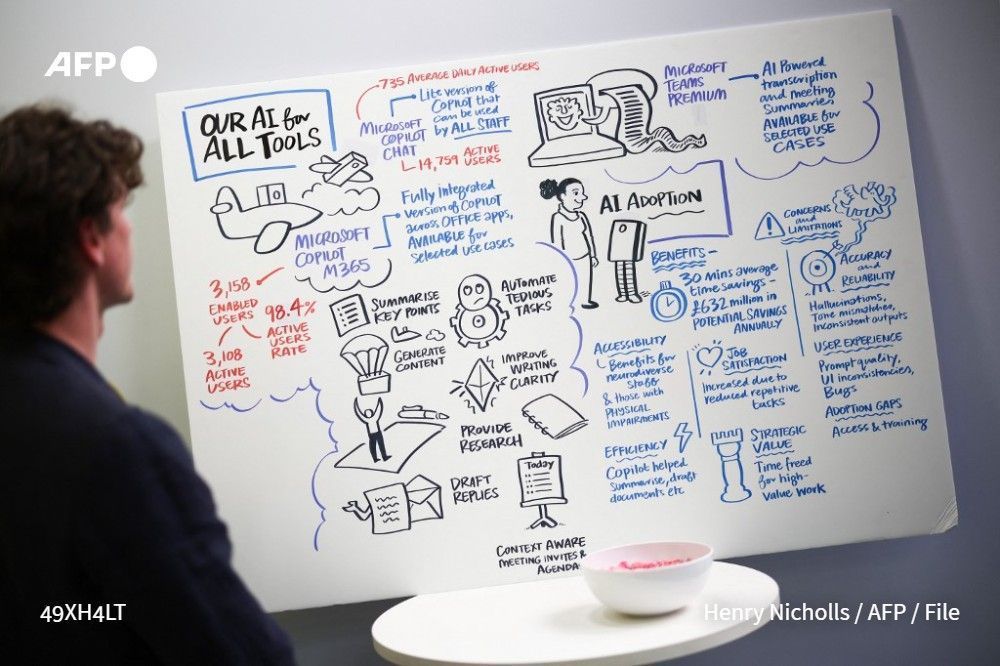 AFP
OUR AI for
ALL TOOLS
735 AVERAGE DAILY ACTIVE USERS
Lite version of
COPILOT that
can be used
by ALL STAFF
MICROSOFT
COPILOT
CHAT
14,759 ACTIVE
USERS
MICROSOFT
TEAMS
PREMIUM
AI Powered
transcription
and meeting
Summaries
AVAILABLE for
SELECTED USE
CASES
Fully integrated
version of COPILOT
across OFFICE apps,
AVAILABLE for
selected use cases
MICROSOFT
COPILOT
M365
3,158
ENABLED
USERS
98.4%
ACTIVE
USERS
RATE
3,108
ACTIVE
USERS
SUMMARISE
KEY POINTS
AUTOMATE
TEDIOUS
TASKS
GENERATE
CONTENT
IMPROVE
WRITING
CLARITY
PROVIDE
RESEARCH
DRAFT
REPLIES
Today
CONTEXT AWARE
MEETING INVITES &
AGENDA
AI ADOPTION
BENEFITS -
30 mins average
time savings -
£632 million in
POTENTIAL SAVINGS
ANNUALLY
ACCESSIBILITY
Benefits for
neurodiverse
staff
& those with
PHYSICAL
IMPAIRMENTS
JOB
SATISFACTION
Increased due to
reduced repetitive
tasks
EFFICIENCY
Copilot helped
summarise, draft
documents etc
STRATEGIC
VALUE
Time freed
for high-
value work
CONCERNS
and
LIMITATIONS
ACCURACY
and
RELIABILITY
Hallucinations,
Tone mismatches,
Inconsistent outputs
USER EXPERIENCE
Prompt quality,
UI inconsistencies,
Bugs
ADOPTION GAPS
Access & training
49XH4LT
Henry Nicholls / AFP / File